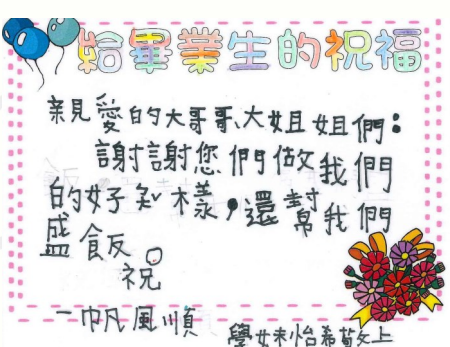 給畢業生的祝福
親愛的大哥哥、大姐姐們：
謝謝您們做我們
的好和樣，還幫我們
盛飯。
祝
一帆風順
學妹怡希敬上